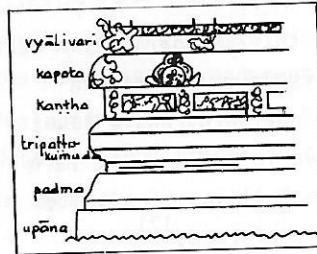 vyālivari
kapota
kaṇṭha
tripaṭṭa
kumuda
padma
upāna